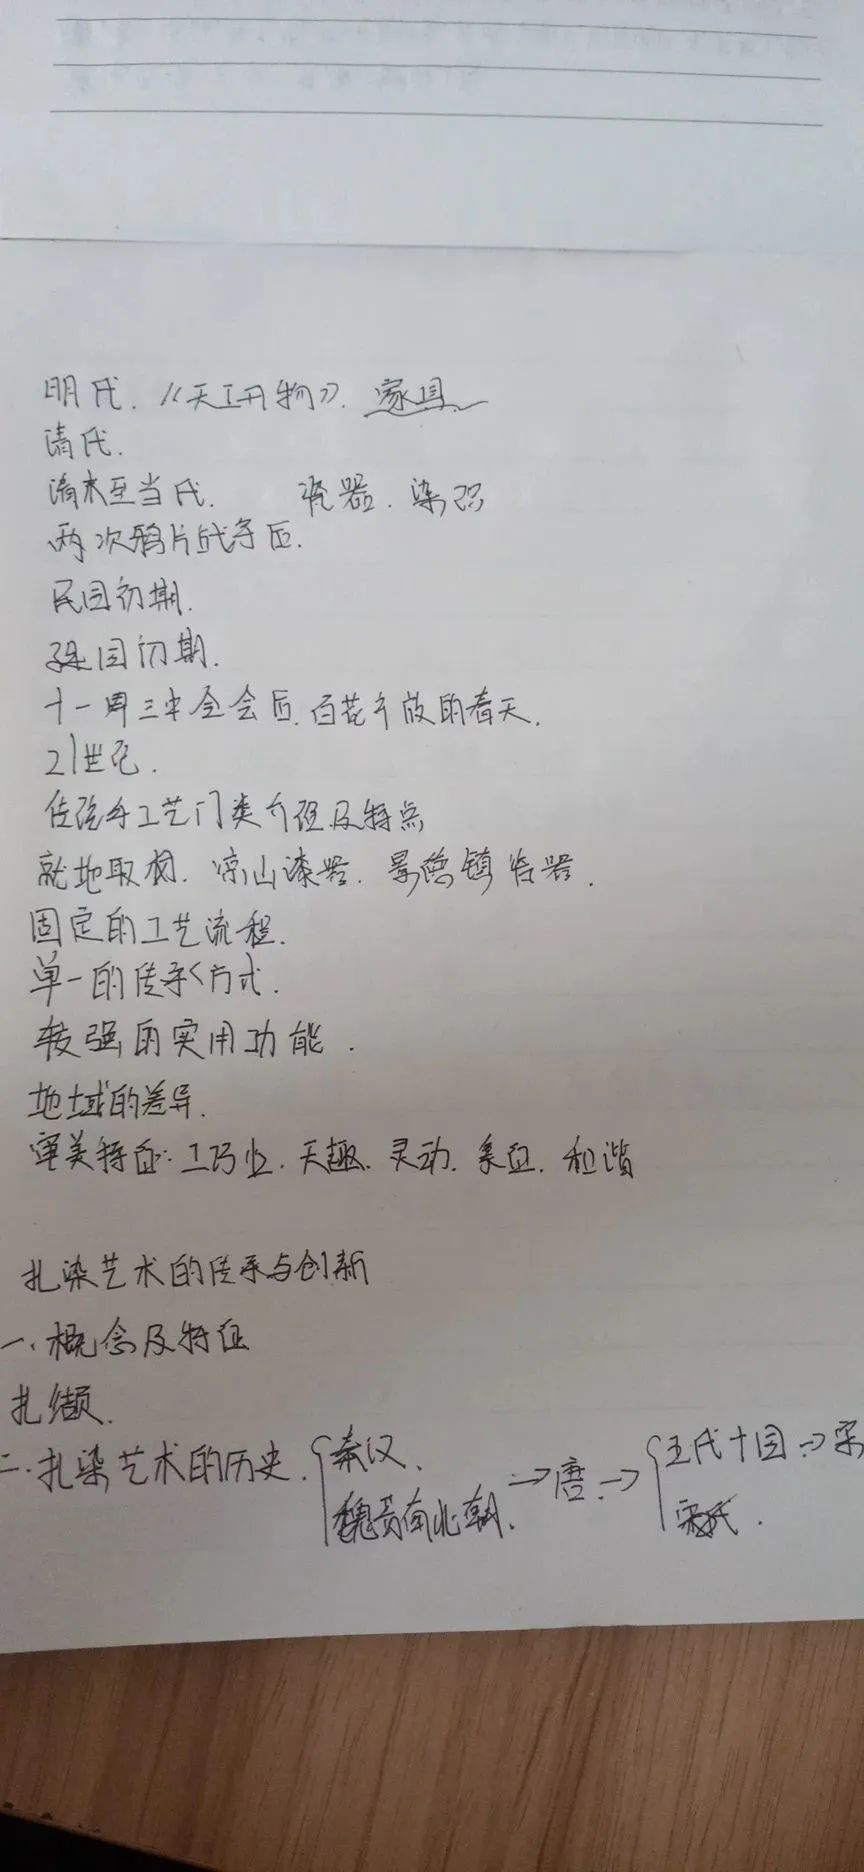 明代.《天工开物》.家具.
清代.
清末至当代. 瓷器.染织
两次鸦片战争后.
民国初期.
建国初期.
十一届三中全会后.百花齐放的春天.
21世纪.
传统手工艺门类介绍及特点
就地取材.凉山漆器.景德镇瓷器.
固定的工艺流程.
单一的传承方式.
较强的实用功能.
地域的差异.
审美特征:工巧性.天趣.灵动.象征.和谐
扎染艺术的传承与创新
一.概念及特征
扎缬.
二.扎染艺术的历史.{秦汉、魏晋南北朝.→唐.→{五代十国.→宋